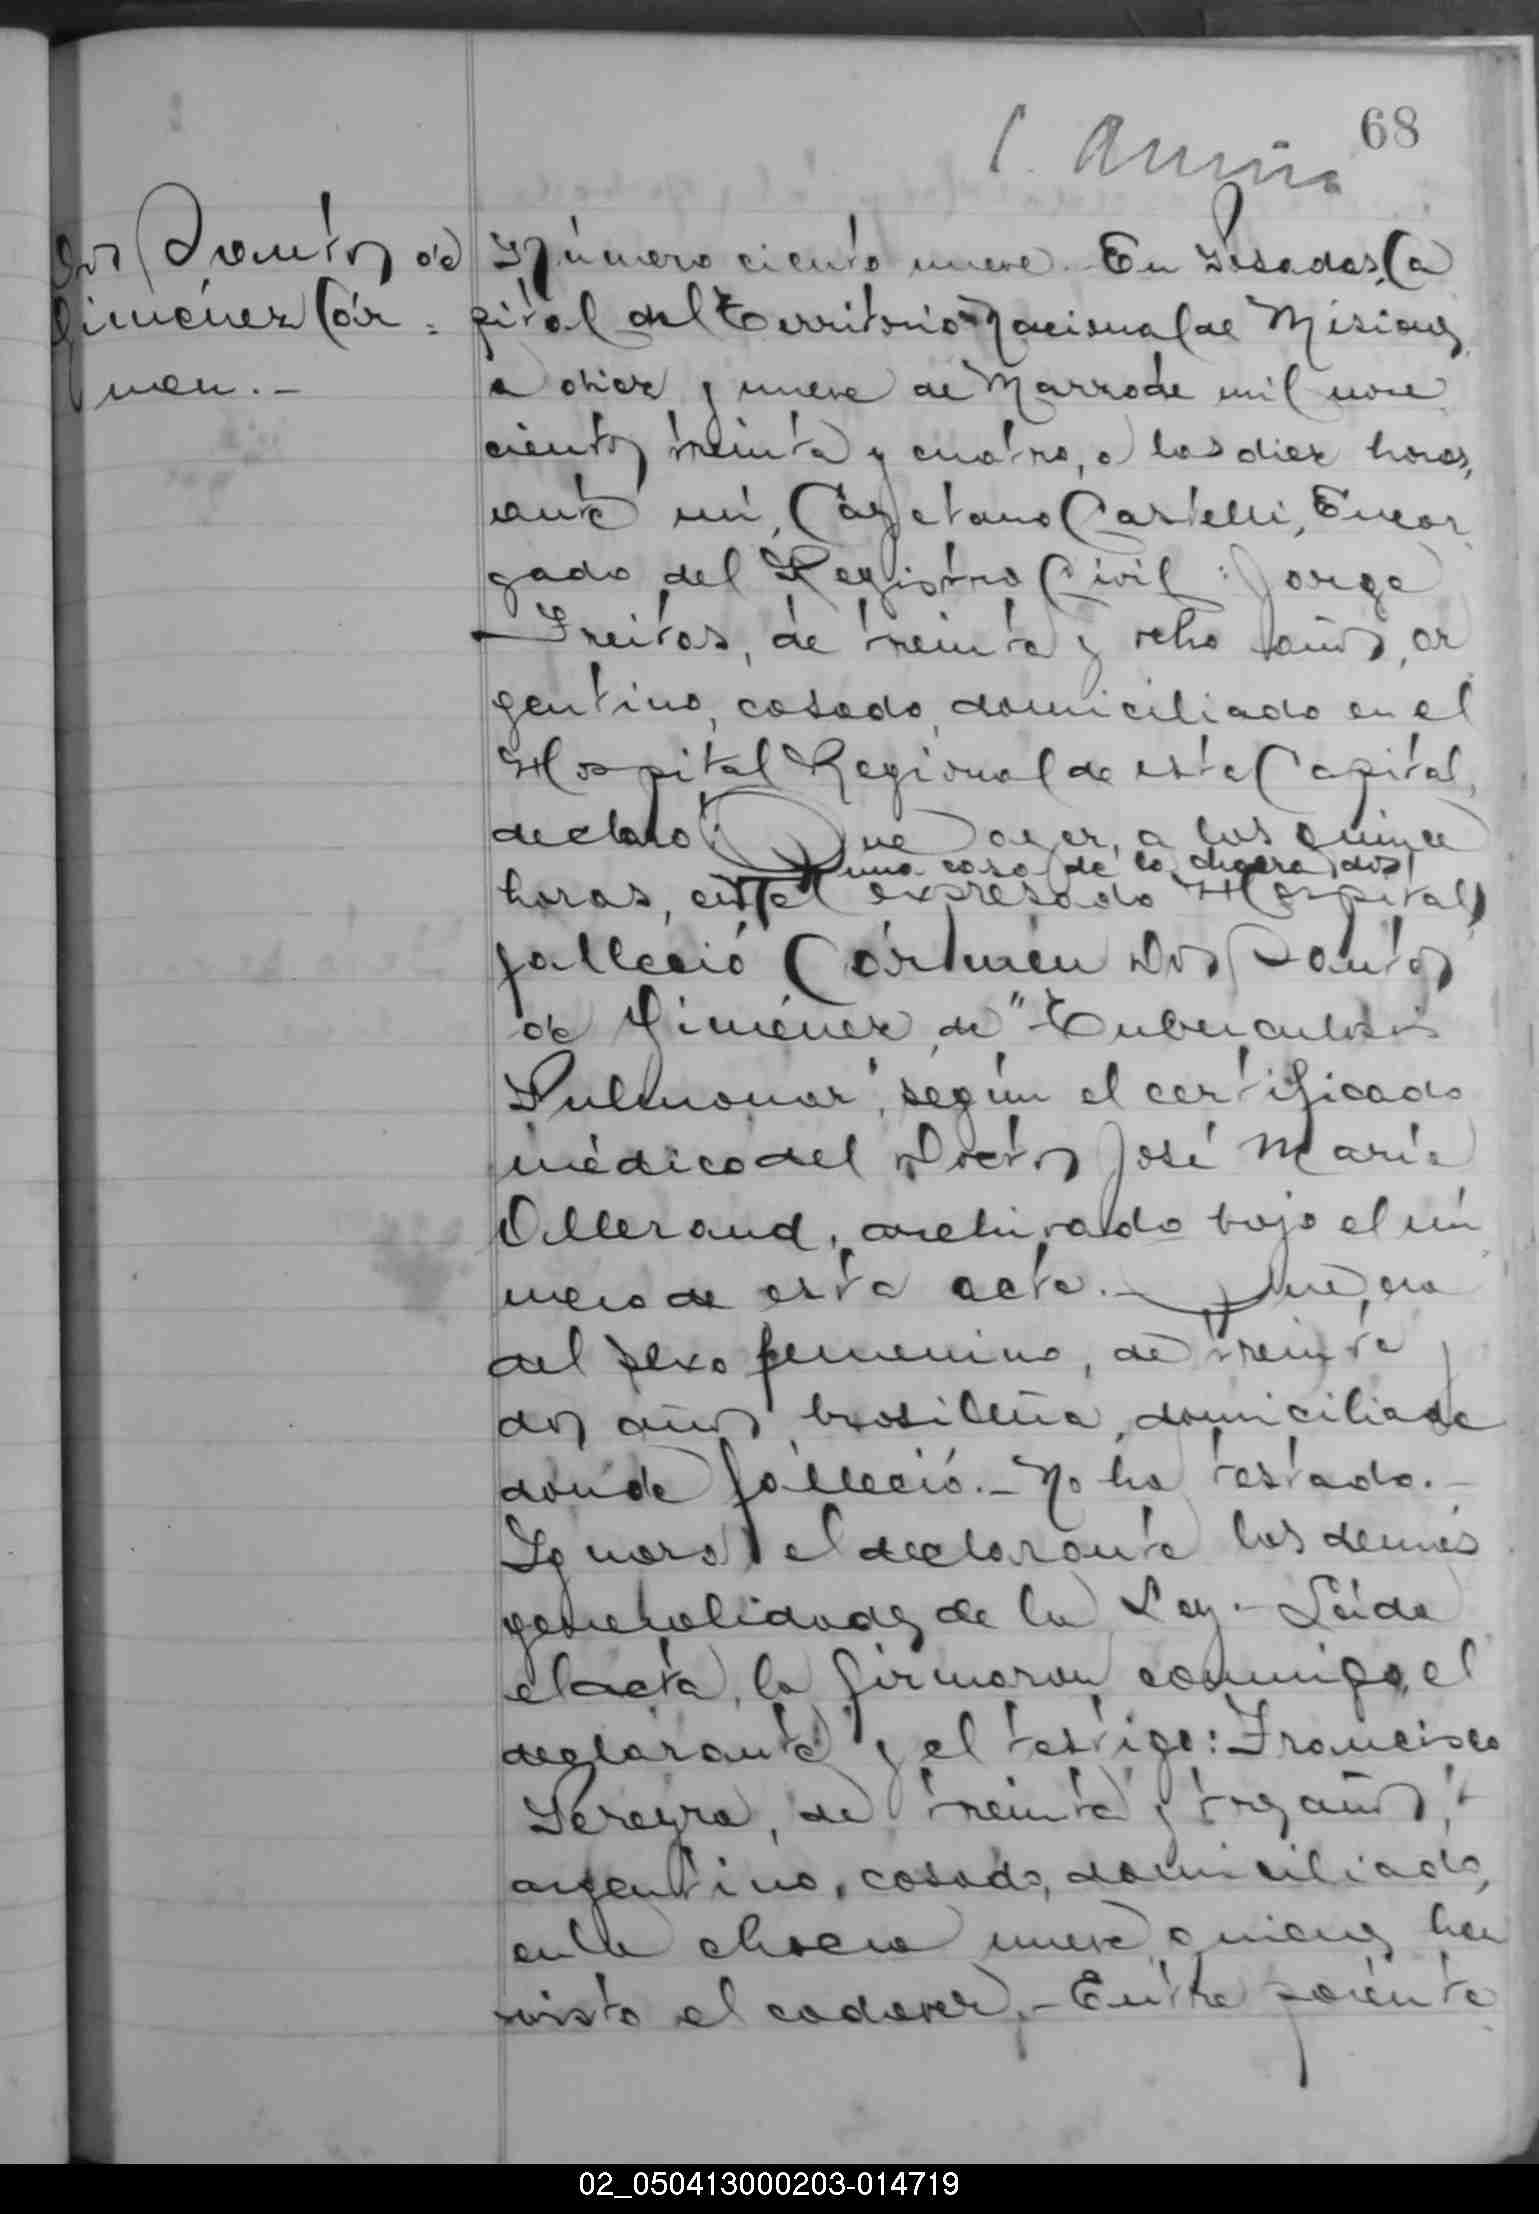 68
Dos Santos de
Giménez Cár=
men.-
Número ciento nueve. En Posadas, Ca
pital del Territorio Nacional de Misiones
a diez y nueve de Marzo de mil nove
cientos treinta y cuatro, a las diez horas,
ante mí, Cayetano Castelli, Encar
gado del Registro Civil: Jorge
Freitas, de treinta y ocho años, ar
gentino, casado, domiciliado en el
Hospital Regional de esta Capital,
declaró: Que ayer, a las quince
una casa de la chacra dos
horas, en el expresado Hospital
falleció Cármen Dos Santos
de Giménez, de "Tuberculosis
Pulmonar", según el certificado
médico del Doctor José María
Ollerand, archivado bajo el nú
mero de esta acta.- Que, era
del sexo femenino, de treinta y
dos años, brasileña, domiciliada
donde falleció.- No ha testado.-
Ignora el declarante las demás
generalidades de la Ley.- Leída
el acta, la firmaron conmigo, el
declarante y el testigo: Francisco
Pereyra, de treinta y tres años,
argentino, casado, domiciliado,
en la chacra nueve, quienes han
visto el cadáver.- Entre parénte
02_050413000203-014719